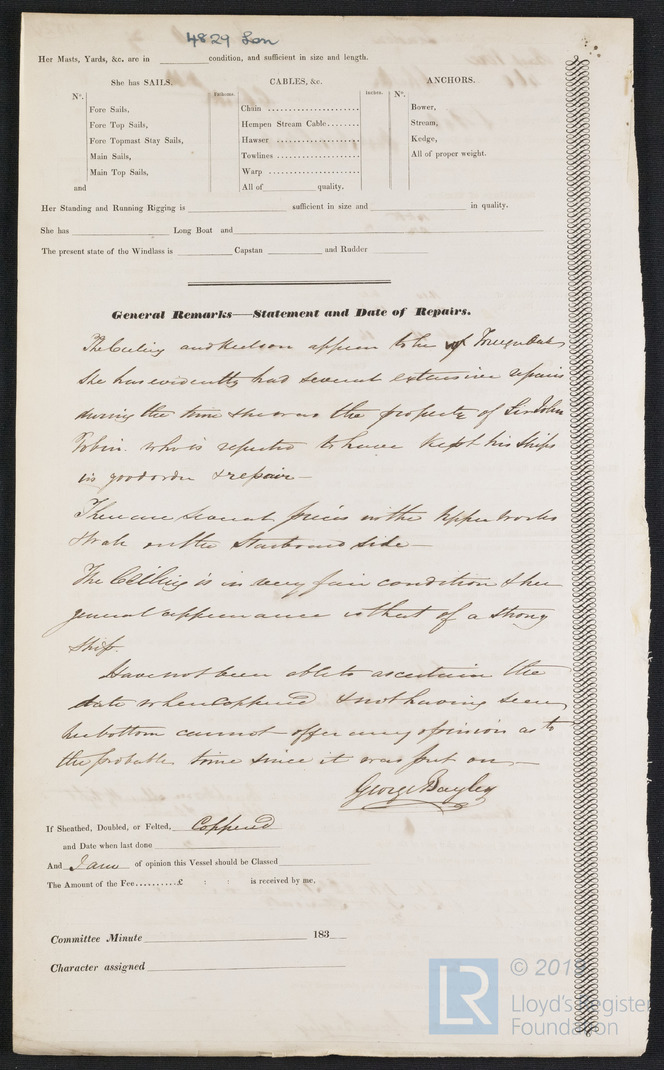 4829 Lon
Her Masts, Yards, &c. are in condition, and sufficient in size and length.
She has SAILS. CABLES, &c. ANCHORS.
Nº. Fathoms. Inches. Nº.
Fore Sails, Chain Bower,
Fore Top Sails, Hempen Stream Cable Stream,
Fore Topmast Stay Sails, Hawser Kedge,
Main Sails, Towlines All of proper weight.
Main Top Sails, Warp
and All of quality.
Her Standing and Running Rigging is sufficient in size and in quality.
She has Long Boat and
The present state of the Windlass is Capstan and Rudder
General Remarks—Statement and Date of Repairs.
The Ceiling and Keelson appear to be of
She has evidently had several extensive repairs
during the time she was the property of Sir John
Tobin. who is reputed to have kept his ships
in good order & repair—
There are several pieces in the Upper Works
Strake on the Starboard side—
The Ceiling is in very fair condition & her
general appearance is that of a strong
ship.
Have not been able to ascertain the
date when Coppered & not having seen
her bottom cannot offer any opinion as to
the probable time since it was put on—
George Bayley
If Sheathed, Doubled, or Felted, Coppered
and Date when last done
And I am of opinion this Vessel should be Classed
The Amount of the Fee..........£ : : is received by me,
Committee Minute 183
Character assigned
LR © 2019
Lloyd's Register
Foundation